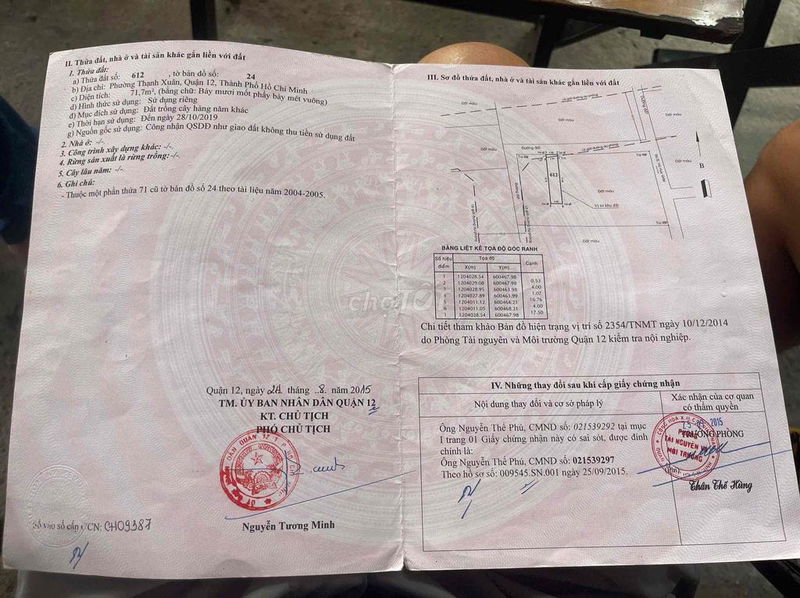 II. Thửa đất, nhà ở và tài sản khác gắn liền với đất
1. Thửa đất:
a) Thửa đất số: 612 , tờ bản đồ số: 24
b) Địa chỉ: Phường Thạnh Xuân, Quận 12, Thành Phố Hồ Chí Minh
c) Diện tích: 71,7m², (bằng chữ: Bảy mươi mốt phẩy bảy mét vuông)
d) Hình thức sử dụng: Sử dụng riêng
đ) Mục đích sử dụng: Đất trồng cây hàng năm khác
e) Thời hạn sử dụng: Đến ngày 28/10/2019
g) Nguồn gốc sử dụng: Công nhận QSDĐ như giao đất không thu tiền sử dụng đất
2. Nhà ở: -/-
3. Công trình xây dựng khác: -/-
4. Rừng sản xuất là rừng trồng: -/-
5. Cây lâu năm: -/-
6. Ghi chú:
- Thuộc một phần thửa 71 cũ tờ bản đồ số 24 theo tài liệu năm 2004-2005.
Quận 12, ngày 24 tháng 8 năm 2015
TM. ỦY BAN NHÂN DÂN QUẬN 12
KT. CHỦ TỊCH
PHÓ CHỦ TỊCH
Nguyễn Tương Minh
Số vào sổ cấp GCN: CH09387
III. Sơ đồ thửa đất, nhà ở và tài sản khác gắn liền với đất
Đất màu
Đất màu
Đất màu
Đường đất
612
B
Đất màu
Vị trí khu đất
Đất màu
BẢNG LIỆT KÊ TỌA ĐỘ GÓC RANH
Số hiệu điểm Tọa độ Cạnh
X(m) Y(m)
1 1204028.54 600467.98
2 1204029.06 600467.98 0.53
3 1204028.95 600463.98 4.00
1204027.89 600463.99 1.07
1204011.12 600464.21 16.76
1204011.05 600468.21 4.00
1 1204028.54 600467.98 17.50
Chi tiết tham khảo Bản đồ hiện trạng vị trí số 2354/TNMT ngày 10/12/2014
do Phòng Tài nguyên và Môi trường Quận 12 kiểm tra nội nghiệp.
IV. Những thay đổi sau khi cấp giấy chứng nhận
Nội dung thay đổi và cơ sở pháp lý
Xác nhận của cơ quan
có thẩm quyền
Ông Nguyễn Thế Phủ, CMND số: 021539292 tại mục
I trang 01 Giấy chứng nhận này có sai sót, được đính
chính là:
Ông Nguyễn Thế Phủ, CMND số: 021539297
Theo hồ sơ số: 009545.SN.001 ngày 25/09/2015.
2015
TRƯỞNG PHÒNG
PHÒNG
TÀI NGUYÊN VÀ
MÔI TRƯỜNG
Thân Thế Hùng